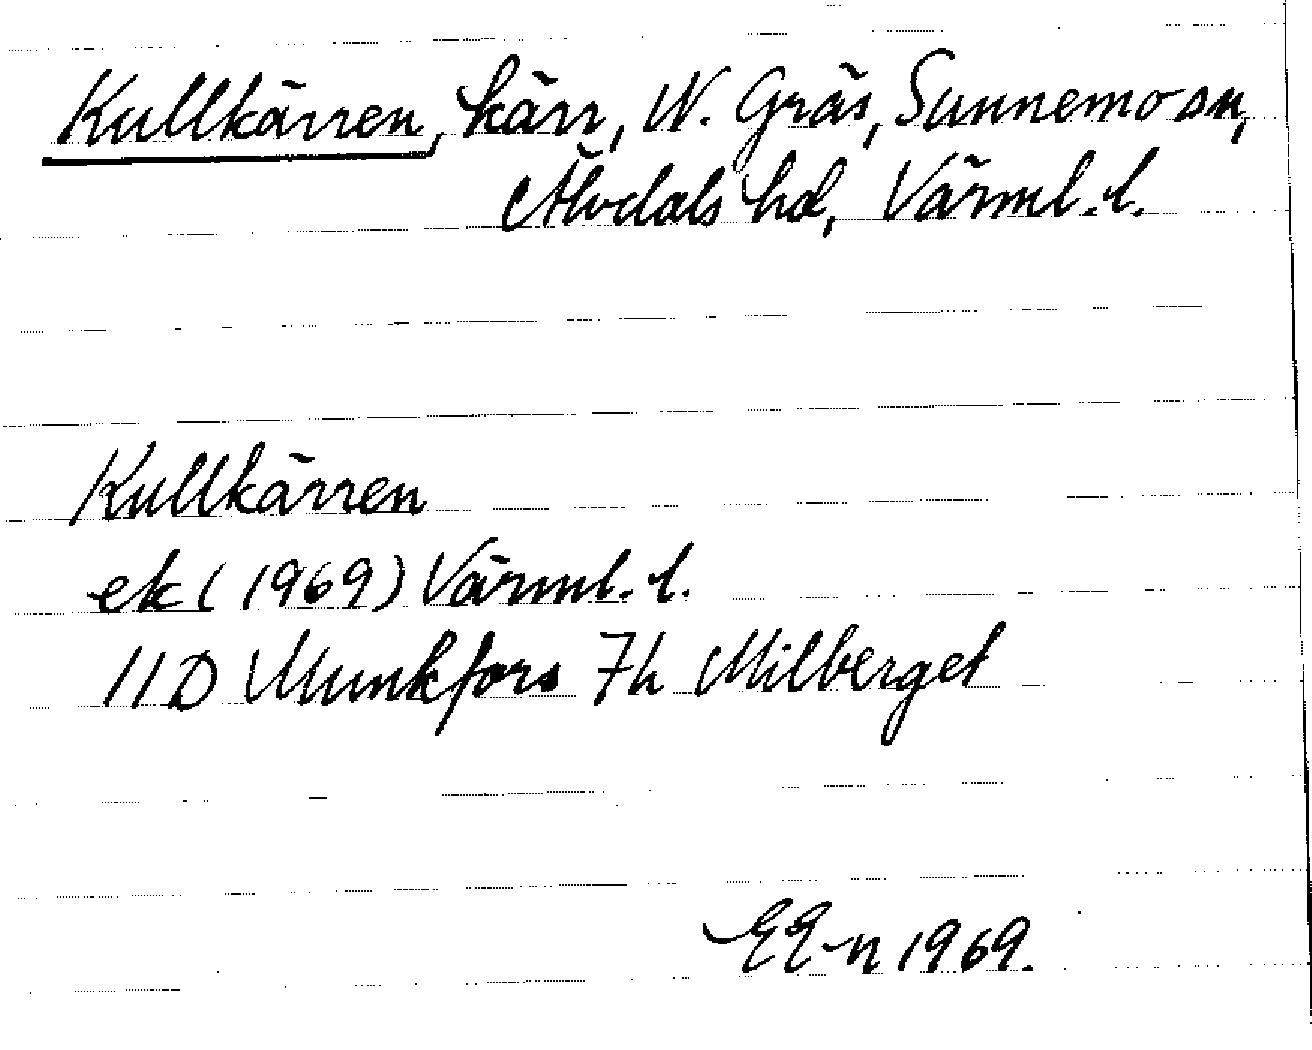 Kullkärren, kärr, N. Gräs, Sunnemo sn,
Älvdals hd, Värml. l.
Kullkärren
ek (1969) Värml. l.
11D Munkfors 7h Milberget
EE-n 1969.